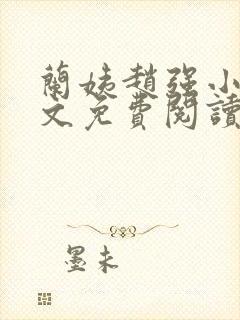 蘭姨趙強小
文免費閱讀
墨未